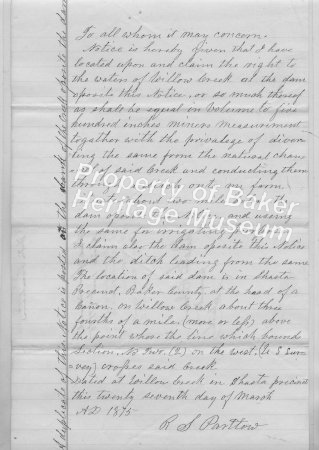 To all whom it may concern.
Notice is hereby given that I have
located upon and claim the right to
the waters of Willow Creek at the dam
oposite this Notice, or so much thereof
as shall be equal in Volume to five
hundred inches miners measurement
together with the privalege of diver
ting the same from the natural chan
of said Creek and conducting them
my farm
miles
dam and using
the same for irrigating
I claim also the dam oposite this Notice
and the ditch leading from the same
The location of said dam is in Shasta
Precinct, Baker County, at the head of a
Cañon, on Willow Creek, about three
fourths of a mile, (more or less) above
the point where the line which bounds
Section, No Two. (2) on the west, (U S Sur
vey) crosses said Creek
Dated at Willow Creek in Shasta precinct
this twenty seventh day of March
AD 1875
R S Partlow
A duplicate of this Notice is posted on the of the Creek oposite the dam
Property of Baker
Heritage Museum